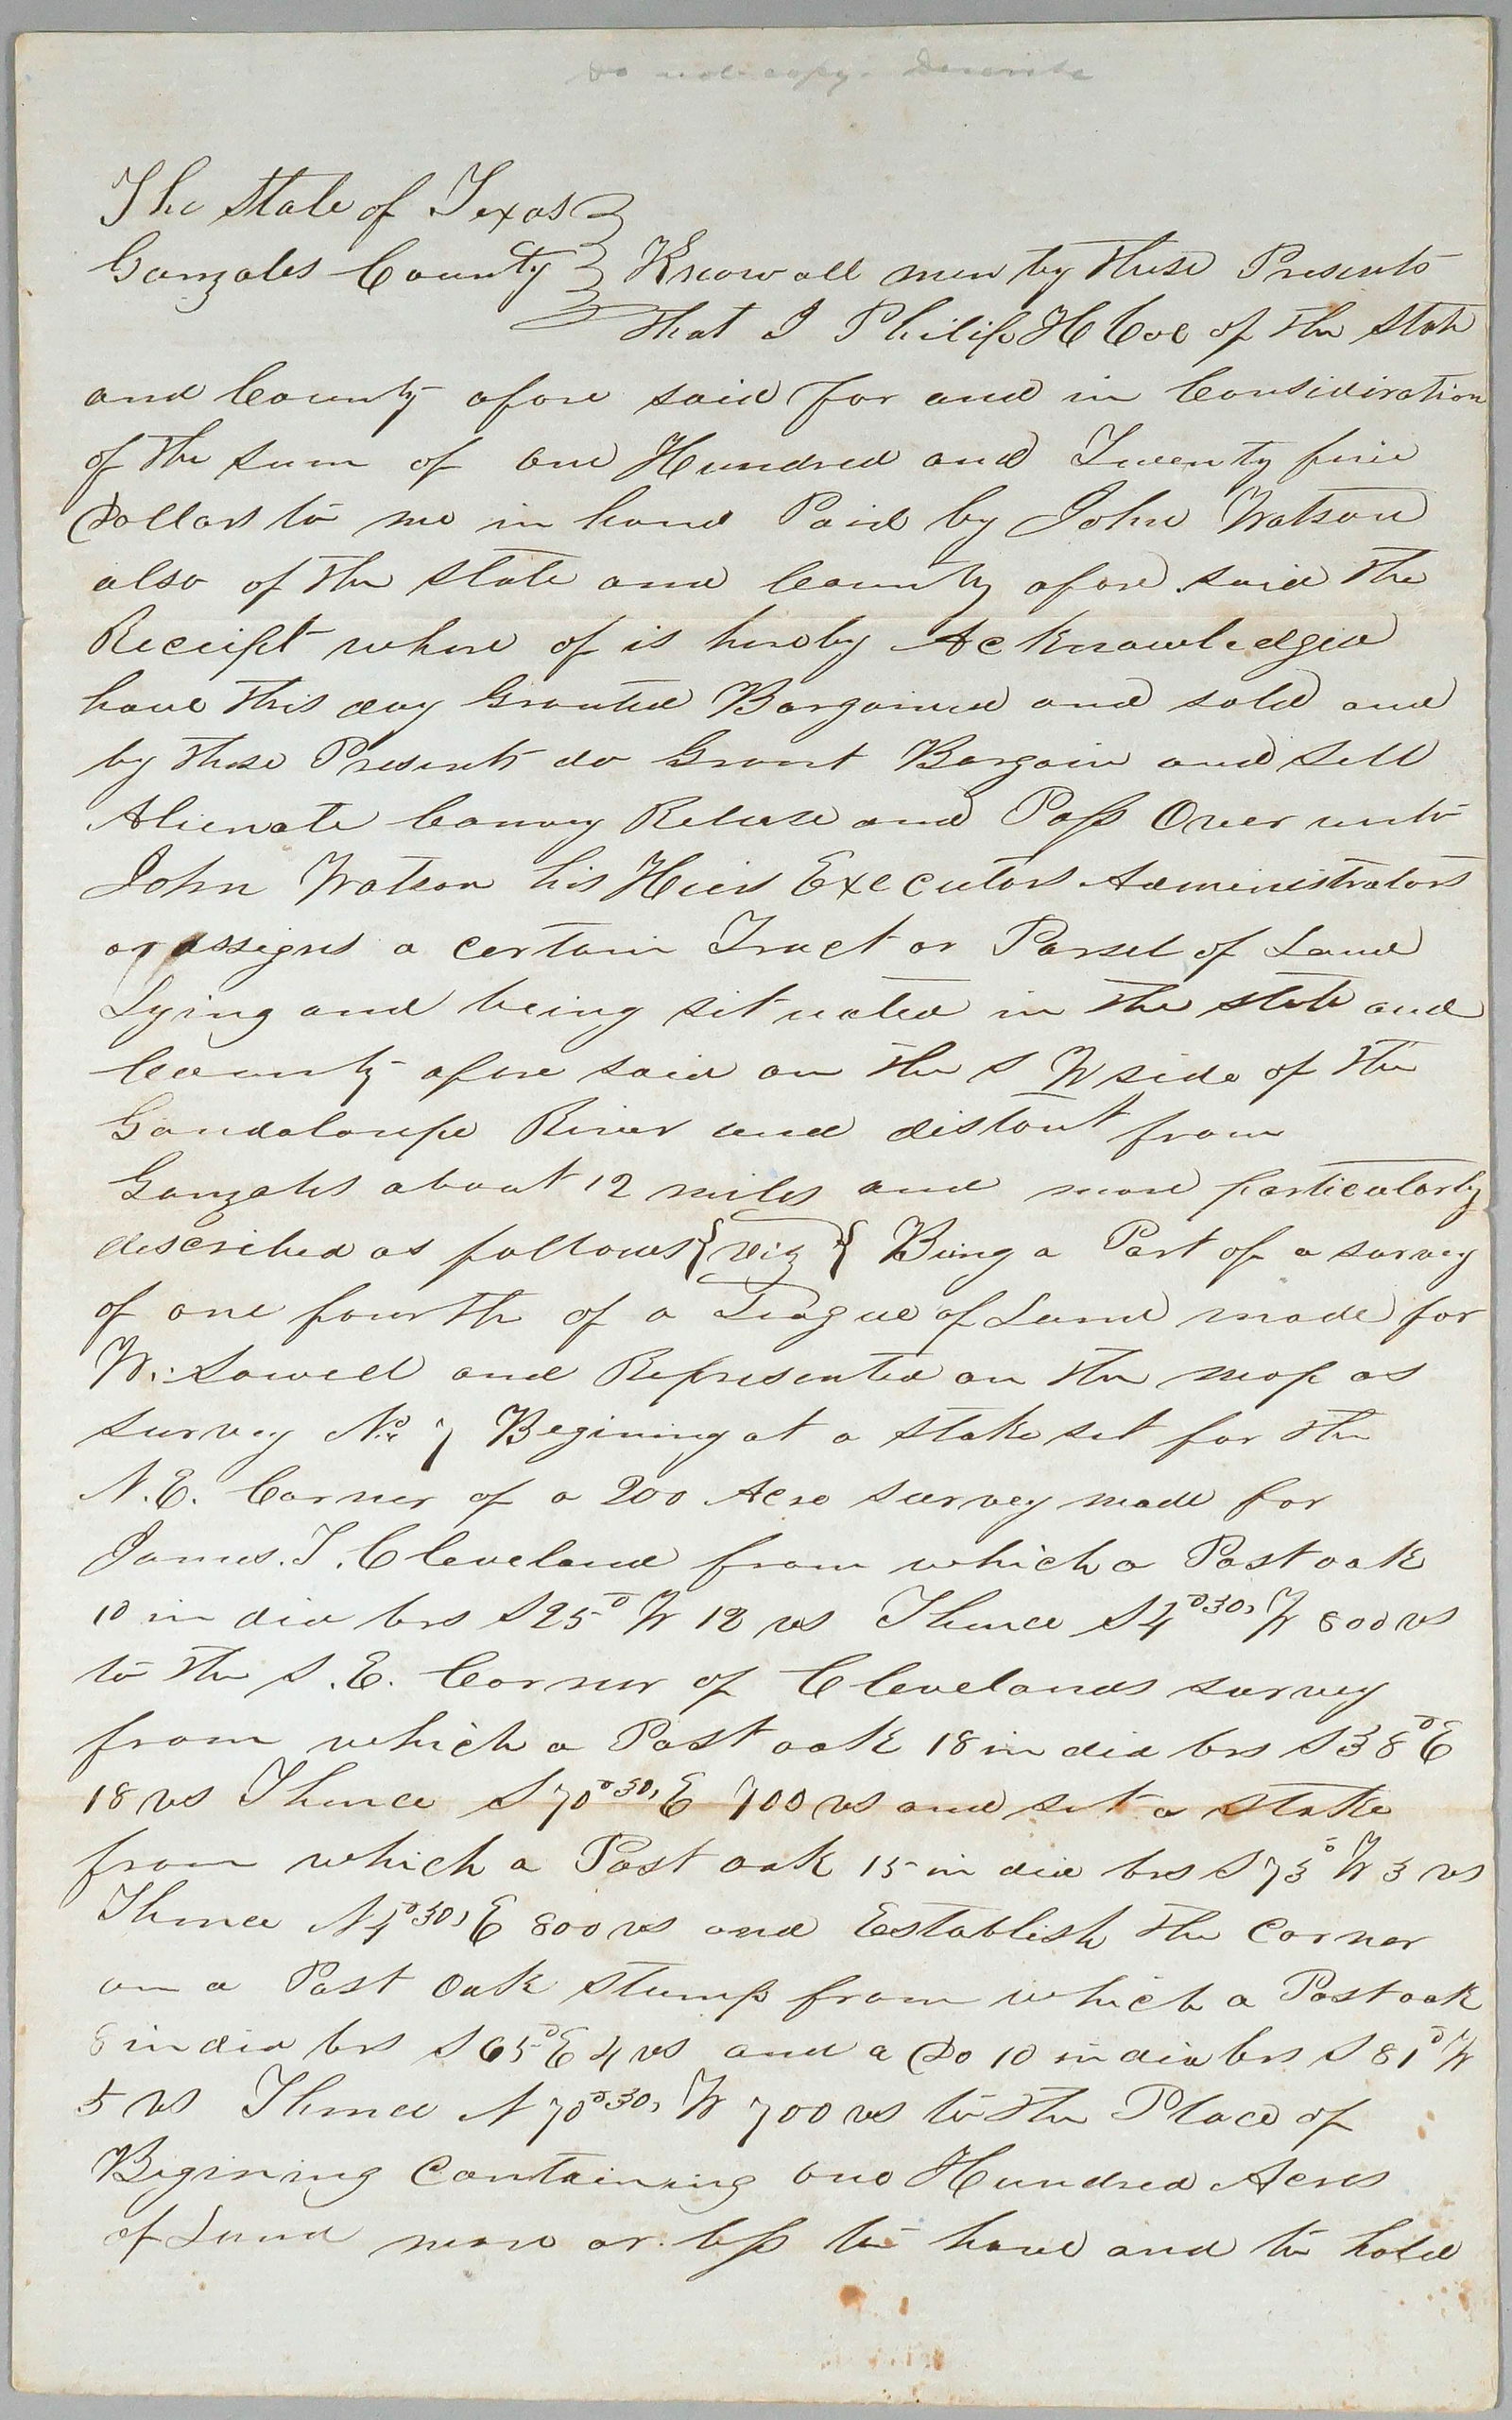 Do not copy. Describe
The State of Texas
Gonzales County Know all men by these Presents
that I Philip H Coe of the State
and County afore said for and in Consideration
of the sum of one Hundred and Twenty five
Dollars to me in hand Paid by John Watson
also of the State and County afore said the
Receipt where of is hereby Acknowledged
have this day Granted Bargained and sold and
by these Presents do Grant Bargain and Sell
Alienate Convey Release and Pass Over unto
John Watson his Heirs Executors Administrators
or assigns a certain Tract or Parsel of Land
Lying and being situated in the state and
County afore said on the S W side of the
Gaudaloupe River and distant from
Gonzales about 12 miles and more particularly
described as follows { viz } Being a Part of a survey
of one fourth of a League of Land made for
W. Sowell and Represented on the map as
survey No. 7 Begining at a stake set for the
N.E. Corner of a 200 Acre survey made for
James. T. Cleveland from which a Post oak
10 in dia brs S 25° W 12 vs Thence S 4° 30' W 800 vs
to the S.E. Corner of Clevelands survey
from which a Post oak 18 in dia brs S 38° E
18 vs Thence S 70° 30' E 700 vs and set a stake
from which a Post oak 15 in dia brs S 73° W 3 vs
Thence N 4° 30' E 800 vs and Establish the Corner
on a Post Oak Stump from which a Post oak
8 in dia brs S 65° E 4 vs and a Do 10 in dia brs S 81° W
5 vs Thence N 70° 30' W 700 vs to the Place of
Begining Containing one Hundred Acres
of Land more or less to have and to hold